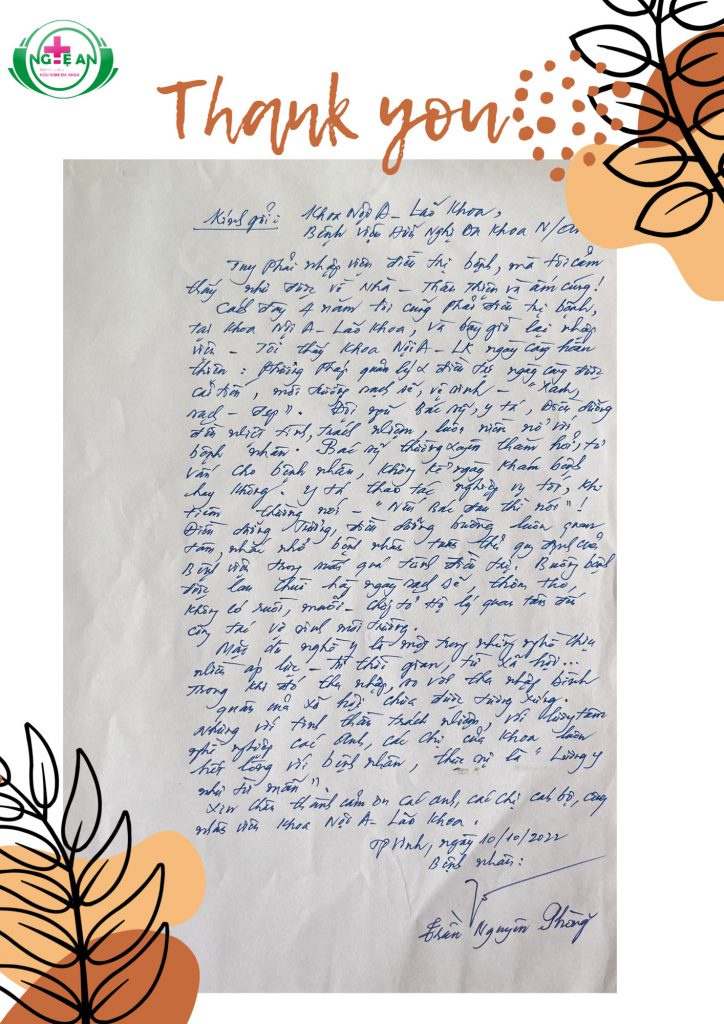 NGHỆ AN
HỮU NGHỊ ĐA KHOA
Thank you
Kính gửi: Khoa Nội A - Lão Khoa,
Bệnh viện Hữu Nghị Đa Khoa N/An
Tuy phải nhập viện điều trị bệnh, mà tôi cảm
thấy như được về Nhà - Thân thiện và ấm cúng!
Cách đây 4 năm tôi cũng phải điều trị bệnh,
tại Khoa Nội A - Lão Khoa, và bây giờ lại nhập
viện - Tôi thấy Khoa Nội A - LK ngày càng hoàn
thiện: phương pháp quản lý & điều trị ngày càng được
cải tiến, môi trường sạch sẽ, vệ sinh - "Xanh,
sạch - đẹp". Đội ngũ Bác sỹ, y tá, điều dưỡng
đều nhiệt tình, trách nhiệm, luôn niềm nở với
bệnh nhân. Bác sỹ thường xuyên thăm hỏi, tư
vấn cho bệnh nhân, không kể ngày khám bệnh
hay không. Y tá thao tác nghiệp vụ tốt, khi
tiêm thường nói - "Nếu Bác đau thì nói"!
Điều dưỡng trưởng, điều dưỡng buồng luôn quan
tâm, nhắc nhở bệnh nhân tuân thủ quy định của
Bệnh viện trong suốt quá trình điều trị. Buồng bệnh
được lau chùi hàng ngày sạch sẽ, thơm tho,
không có ruồi, muỗi - hộ lý quan tâm đến
công tác vệ sinh môi trường.
Mặc dù nghề y là một trong những nghề chịu
nhiều áp lực - từ thời gian, từ xã hội...
Trong khi đó thu nhập, so với thu nhập bình
quân mà xã hội chưa được tương xứng.
Nhưng với tinh thần trách nhiệm, với lương tâm
nghề nghiệp các anh, các chị của Khoa luôn
hết lòng với bệnh nhân, thực sự là "Lương y
như từ mẫu".
Xin chân thành cảm ơn các anh, các chị cán bộ, công
nhân viên Khoa Nội A - Lão Khoa.
TP Vinh, ngày 10/10/2022
Bệnh nhân:
Trần Nguyên Phong